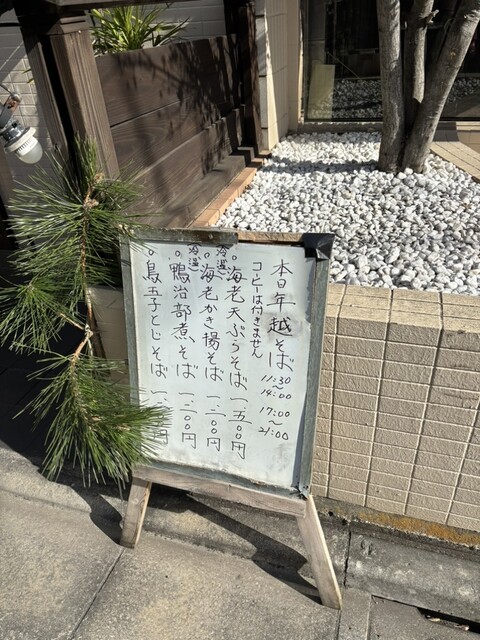 本日年越そば
11:30
~
14:00
17:00
~
21:00
コーヒーは付きません
冷温
海老天ぷらそば 一五〇〇円
冷温
海老かき揚そば 一二〇〇円
鴨治部煮そば 一二〇〇円
鳥玉子とじそば 一
円